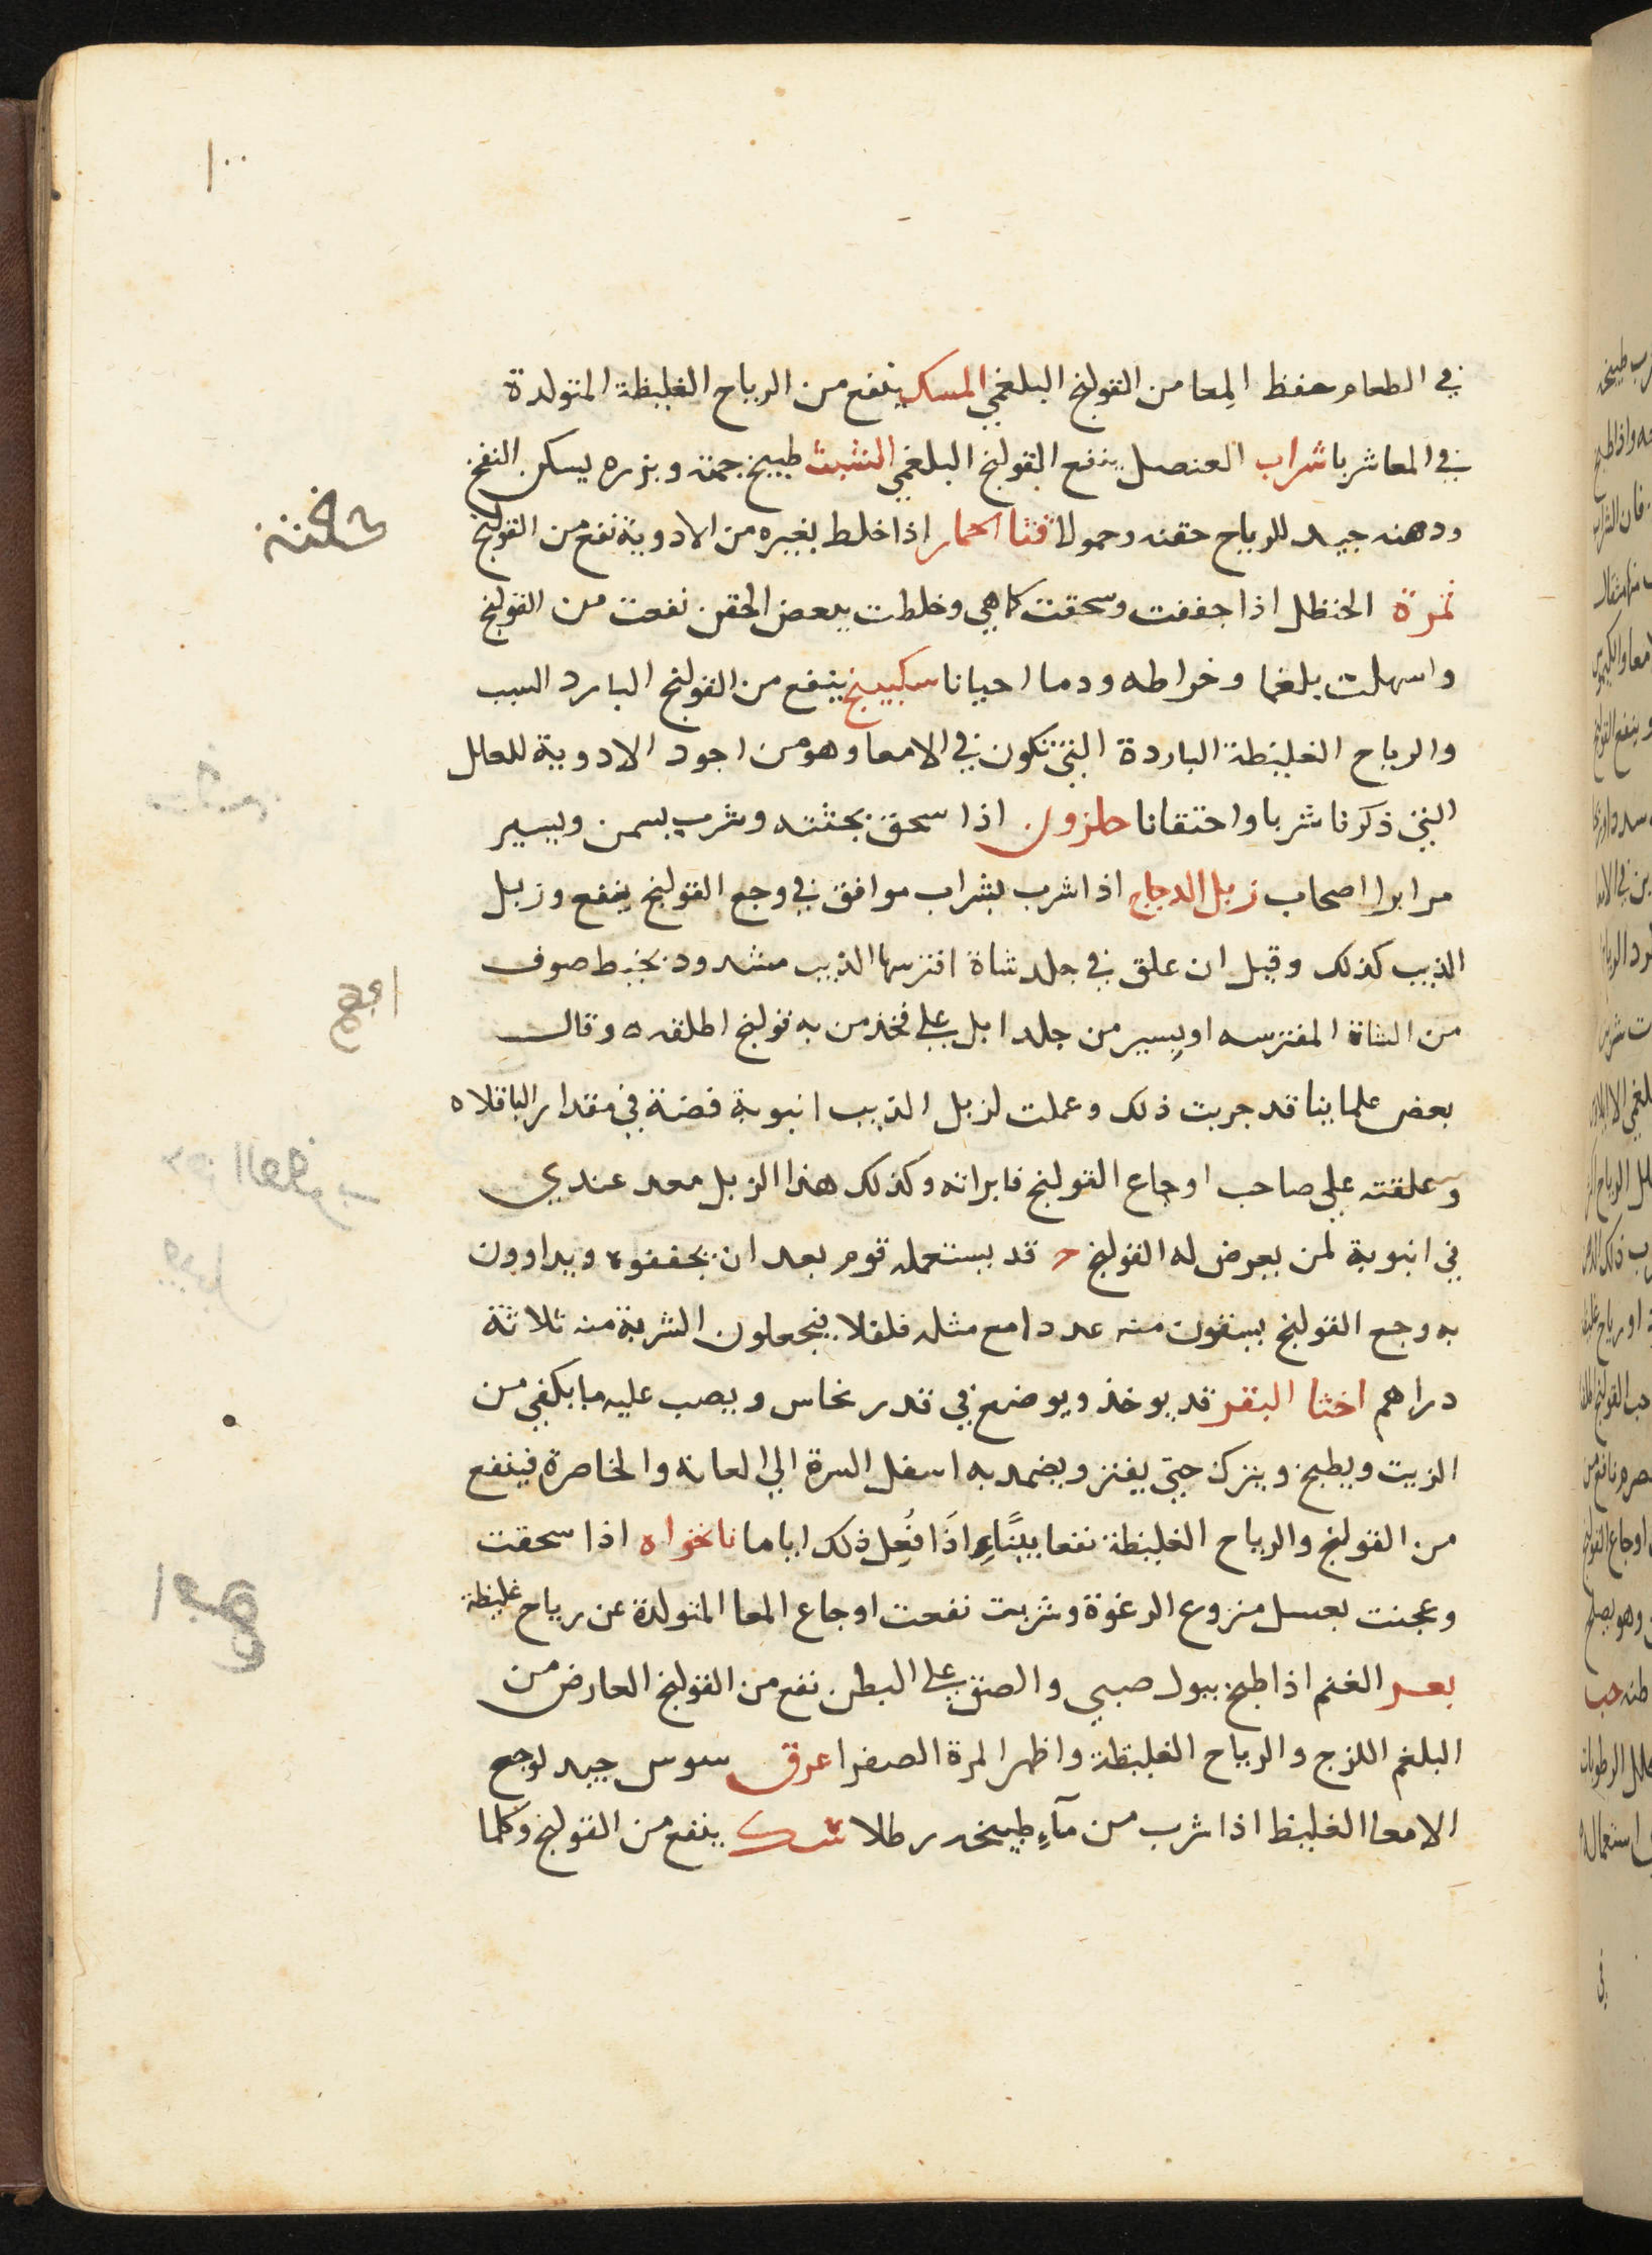 ١٠٠
في الطعام حفظ المعا من القولنج البلغمي المسك ينفع من الرياح الغليظة المتولدة
في المعا شربا شراب العنصل ينفع القولنج البلغمي الشبث طبيخ جمته وبزره يسكن النفخ
ودهنه جيد للرياح حقنه وحمولا قثا الحمار اذا خلط بغيره من الادوية نفع من القولنج
ثمرة الحنظل اذا جففت وسحقت كما هي وخلطت ببعض الحقن نفعت من القولنج
واسهلت بلغما وخراطه ودما احيانا سكبينج ينفع من القولنج البارد السبب
والرياح الغليظة الباردة التي تكون في الامعا وهو من اجود الادوية للعلل
التي ذكرنا شربا واحتقانا حلزون اذا سحق بجثته وشرب بسمن ويسير
مر ابرا اصحاب زبل الدجاج اذا شرب بشراب موافق في وجع القولنج ينفع وزبل
الذيب كذلك وقيل ان علق في جلد شاة افترسها الذيب مشدود بخيط صوف
من الشاة المفترسه او يسير من جلد ابل علي فخذ من به قولنج اطلقه ه وقال
بعض علماينا قد جربت ذلك وعملت لزبل الذيب انبوبة فضة في مقدار الباقلاه
وعلقته علي صاحب اوجاع القولنج فابراته وكذلك هذا الزبل معد عندي
في انبوبة لمن يعرض له القولنج قد يستعمله قوم بعد ان يجففوه ويداوون
به وجع القولنج يسقون منه عددا مع مثله فلفلا فيجعلون الشربة منه ثلاثة
دراهم اخثا البقر قد يوخذ ويوضع في قدر نحاس ويصب عليه ما يكفي من
الزيت ويطبخ ويترك حتي يفتر ويضمد به اسفل السرة الي العانه والخاصرة فينفع
من القولنج والرياح الغليظة نفعا بينًا اذَا فُعِل ذلك اياما نانخواه اذا سحقت
وعجنت بعسل منزوع الرغوة وشربت نفعت اوجاع المعا المتولدة عن رياح غليظة
بعر الغنم اذا طبخ ببول صبي والصق علي البطن نفع من القولنج العارض من
البلغم اللزج والرياح الغليظة واظهر المرة الصفرا عرق سوس جيد لوجع
الامعا الغليظ اذا شرب من مآءِ طبيخه رطلا ينفع من القولنج وكلما